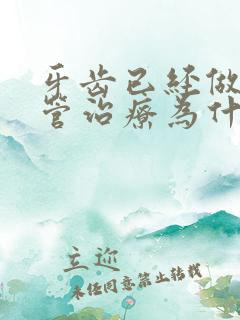 牙齿已经做
管治疗为什
立迩
未经同意禁止转载